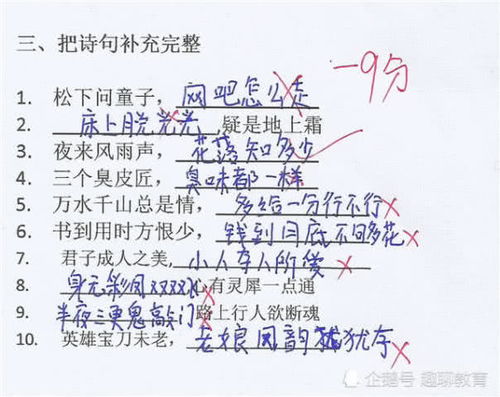 三、把诗句补充完整
-9分
1. 松下问童子，网吧怎么走
2. 床上脱光光,疑是地上霜
3. 夜来风雨声，花落知多少
4. 三个臭皮匠，臭味都一样
5. 万水千山总是情，多给一分行不行
6. 书到用时方恨少，钱到月底不够花
7. 君子成人之美,小人夺人所爱
8. 身无彩凤双双飞心有灵犀一点通
9. 半夜三更鬼敲门路上行人欲断魂
10. 英雄宝刀未老，老娘风韵犹存
企鹅号 趣聊教育